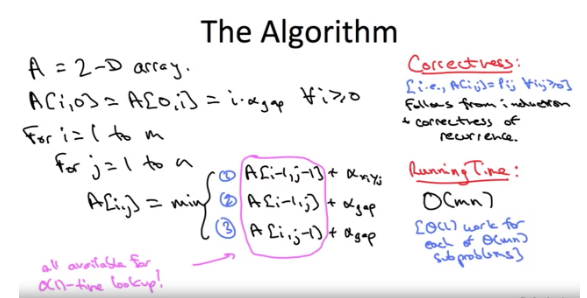 The Algorithm
A = 2-D array.
A[i,0] = A[0,i] = i·α_gap ∀i≥0
For i=1 to m
For j=1 to n
A[i,j] = min { ① A[i-1,j-1] + α_xiyj
② A[i-1,j] + α_gap
③ A[i,j-1] + α_gap
all available for
O(1)-time lookup!
Correctness:
[i.e., A[i,j] = Pij ∀i,j≥0]
Follows from induction
+ correctness of
recurrence.
Running Time:
O(mn)
[O(1) work for
each of O(mn)
subproblems]